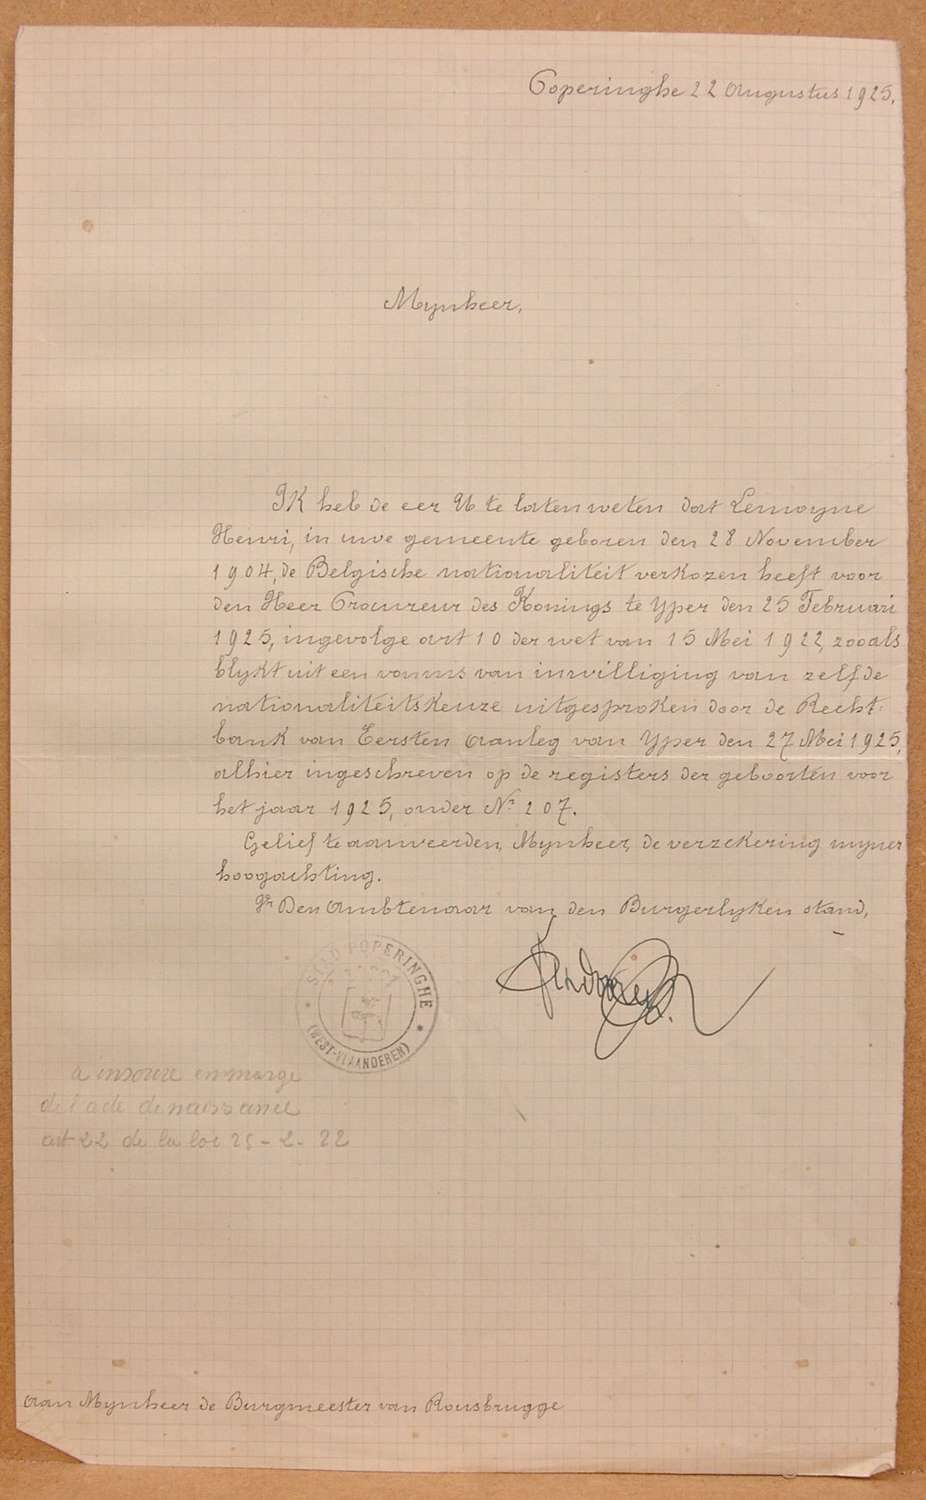 Poperinghe 22 Augustus 1925.
Mynheer,
IK heb de eer U te laten weten dat Lemoyne
Henri, in uwe gemeente geboren den 28 November
1904, de Belgische nationaliteit verkozen heeft voor
den Heer Procureur des Konings te Yper den 25 Februari
1925, ingevolge art 10 der wet van 15 Mei 1922, zooals
blykt uit een vonnis van inwilliging van zelfde
nationaliteitskeuze uitgesproken door de Recht=
bank van Eersten Aanleg van Yper den 27 Mei 1925,
alhier ingeschreven op de registers der geboorten voor
het jaar 1925, onder Nr 207.
Gelief te aanveerden, Mynheer, de verzekering myner
hoogachting.
Den Ambtenaar van den Burgerlyken stand,
STAD POPERINGHE
(WEST-VLAANDEREN)
a inscrire en marge
de l'acte de naissance
art 22 de la loi 25-2-22
Aan Mynheer de Burgmeester van Rousbrugge